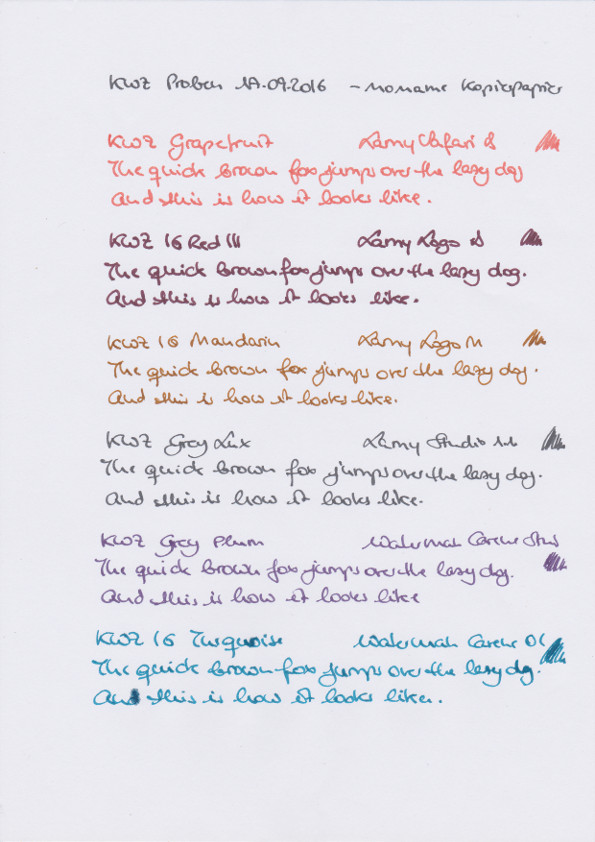 KWZ Proben 17.09.2016 - noname Kopierpapier
KWZ Grapefruit Lamy Safari B
The quick brown fox jumps over the lazy dog
And this is how it looks like.
KWZ IG Red III Lamy Logo B
The quick brown fox jumps over the lazy dog.
And this is how it looks like.
KWZ IG Mandarin Lamy Logo M
The quick brown fox jumps over the lazy dog.
And this is how it looks like.
KWZ Grey Lux Lamy Studio 1.1
The quick brown fox jumps over the lazy dog.
And this is how it looks like.
KWZ Grey Plum Waterman Carene
The quick brown fox jumps over the lazy dog.
And this is how it looks like
KWZ IG Turquoise Waterman Carene
The quick brown fox jumps over the lazy dog.
And this is how it looks like.